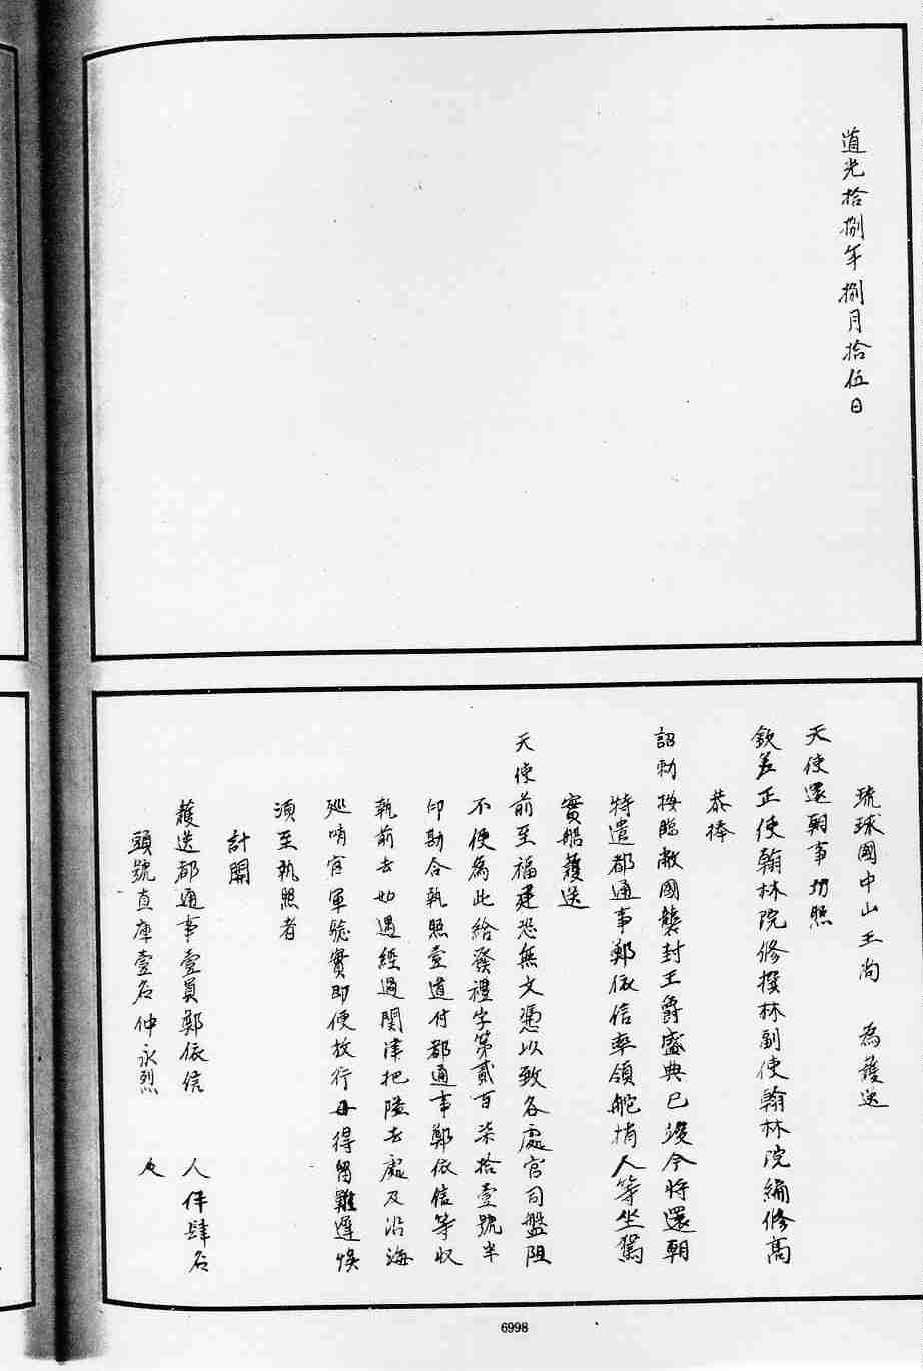 道光拾捌年捌月拾伍日
琉球國中山王尚 為護送
天使還朝事切照
欽差正使翰林院修撰林副使翰林院編修高
恭捧
詔勅按臨敝國襲封王爵盛典已竣今將還朝
特遣都通事鄭依信率領舵梢人等坐駕
寳船護送
天使前至福建恐無文憑以致各處官司盤阻
不便為此給發禮字第貳百柒拾壹號半
印勘合執照壹道付都通事鄭依信等收
執前去如遇經過関津把隘去處及沿海
廵哨官軍驗實即便放行毋得留難遲悞
須至執照者
計開
護送都通事壹員鄭依信 人伴肆名
頭號直庫壹名仲永烈
6998